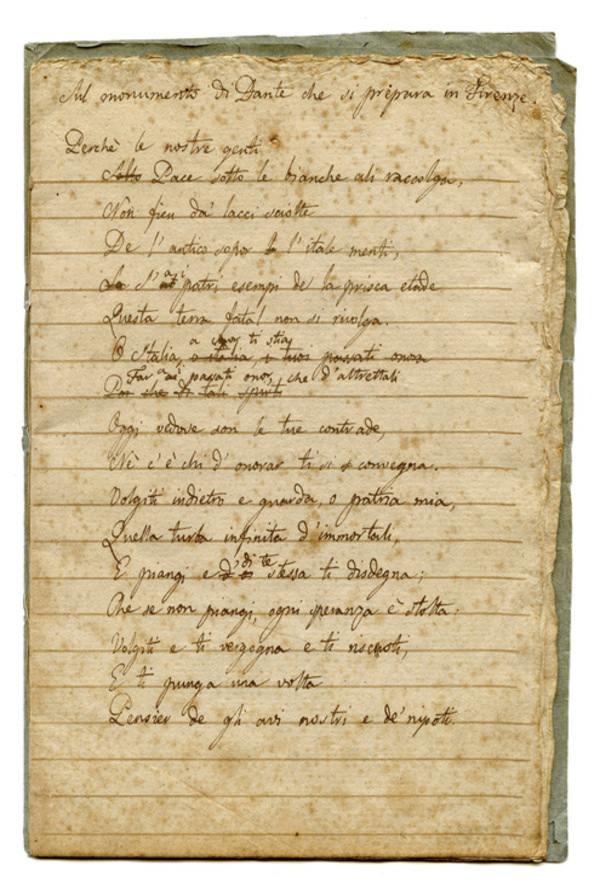 Sul monumento di Dante che si prepara in Firenze.
Perchè le nostre genti
Pace sotto le bianche ali raccolga,
Non fien da' lacci sciolte
De l'antico sopor l'itale menti,
S' ai patri esempi de la prisca etade
Questa terra fatal non si rivolga.
a cor ti stia
O Italia, o Italia, i tuoi passati onor
Far ai passati onor, che d'altrettali
Por che di tali spirti
Oggi vedove son le tue contrade,
Nè c'è chi d'onorar ti si convegna.
Volgiti indietro e guarda, o patria mia,
Quella turba infinita d'immortali,
di te
E piangi e stessa ti disdegna;
Che se non piangi, ogni speranza è stolta:
Volgiti e ti vergogna e ti riscuoti,
E ti punga una volta
Pensier de gli avi nostri e de' nipoti.